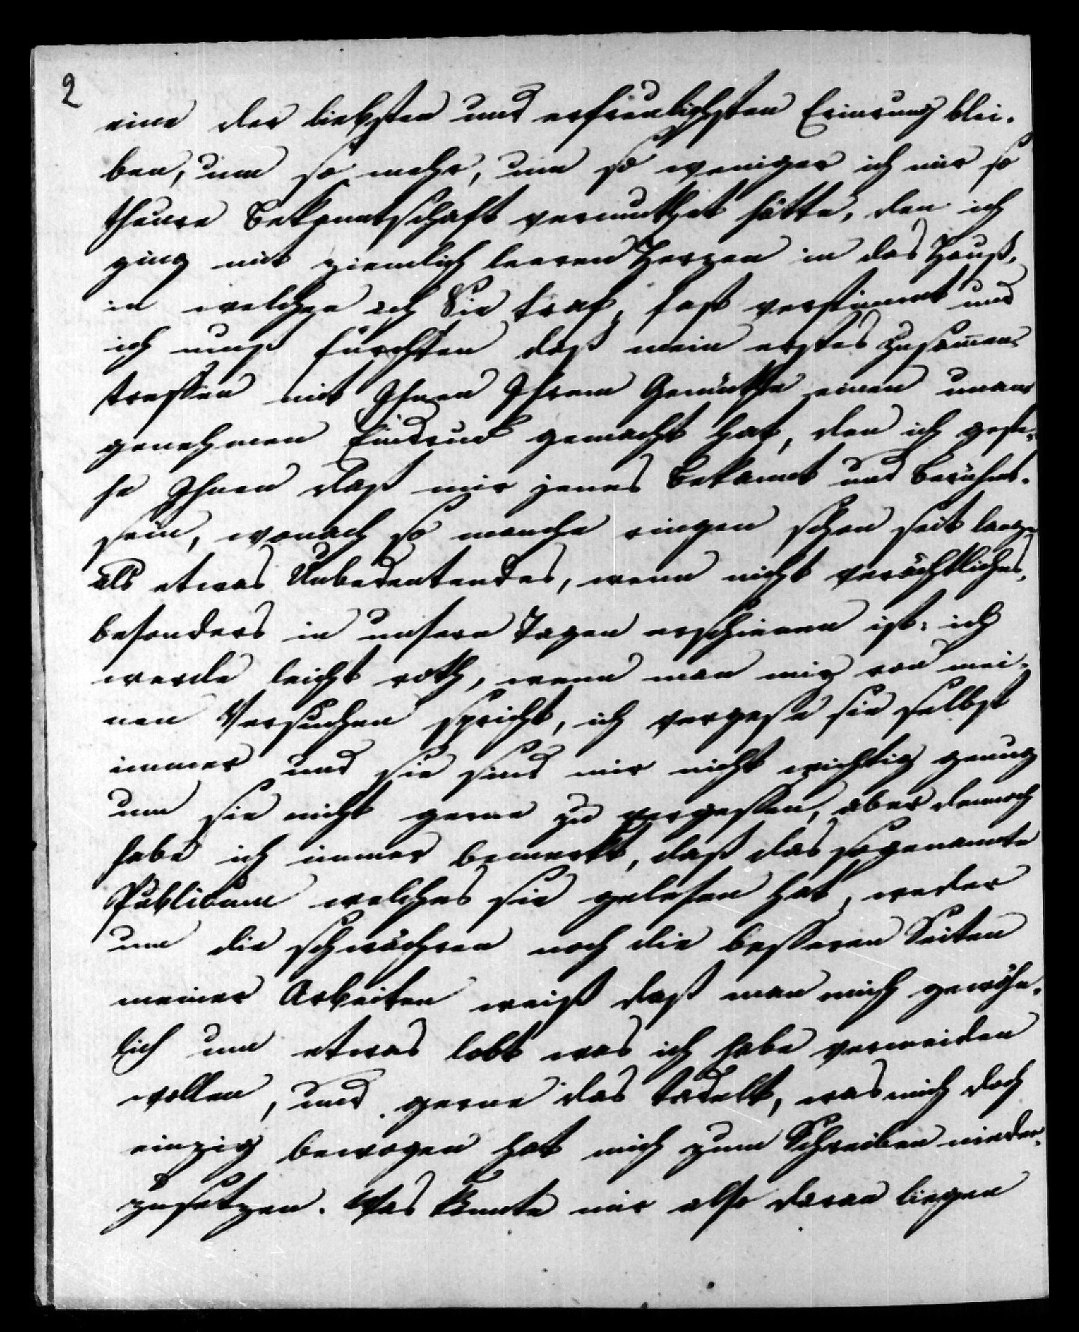 2
eine der liebsten und erfreulichsten Erinrung blei-
ben, um so mehr, um so weniger ich mir so
theure Bekanntschaft vermuthet hätte, den ich
ging mit ziemlich leeren Herzen in das Hauß,
in welchem ich Sie traf, fast verstimmt und
ich muß fürchten daß mein erstes Zusammen-
treffen mit Ihnen Ihrem Gemüthe einen unan-
genehmen Eindruck gemacht hat, den ich geste-
he Ihnen daß mir jenes Bekannt und Berühmt-
sein, wonach so manche ringen schon seit lange
als etwas Unbedeutendes, wenn nicht verächtliches,
besonders in unsern Tagen erschienen ist: ich
werde leicht roth, wenn man mir von mei-
nen Versuchen spricht, ich vergesse sie selbst
immer und sie sind mir nicht wichtig genug
um sie nicht gerne zu vergessen, aber dennoch
habe ich immer bemerkt, daß das sogenannte
Publicum welches sie gelesen hat, weder
um die schwächren noch die besseren Seiten
meiner Arbeiten weiß daß man mich gewöhn-
lich um etwas lobt was ich habe vermeiden
wollen, und gerne das tadelt, was mich doch
einzig bewogen hat mich zum Schreiben nieder-
zusetzen. Was konnte mir also daran liegen